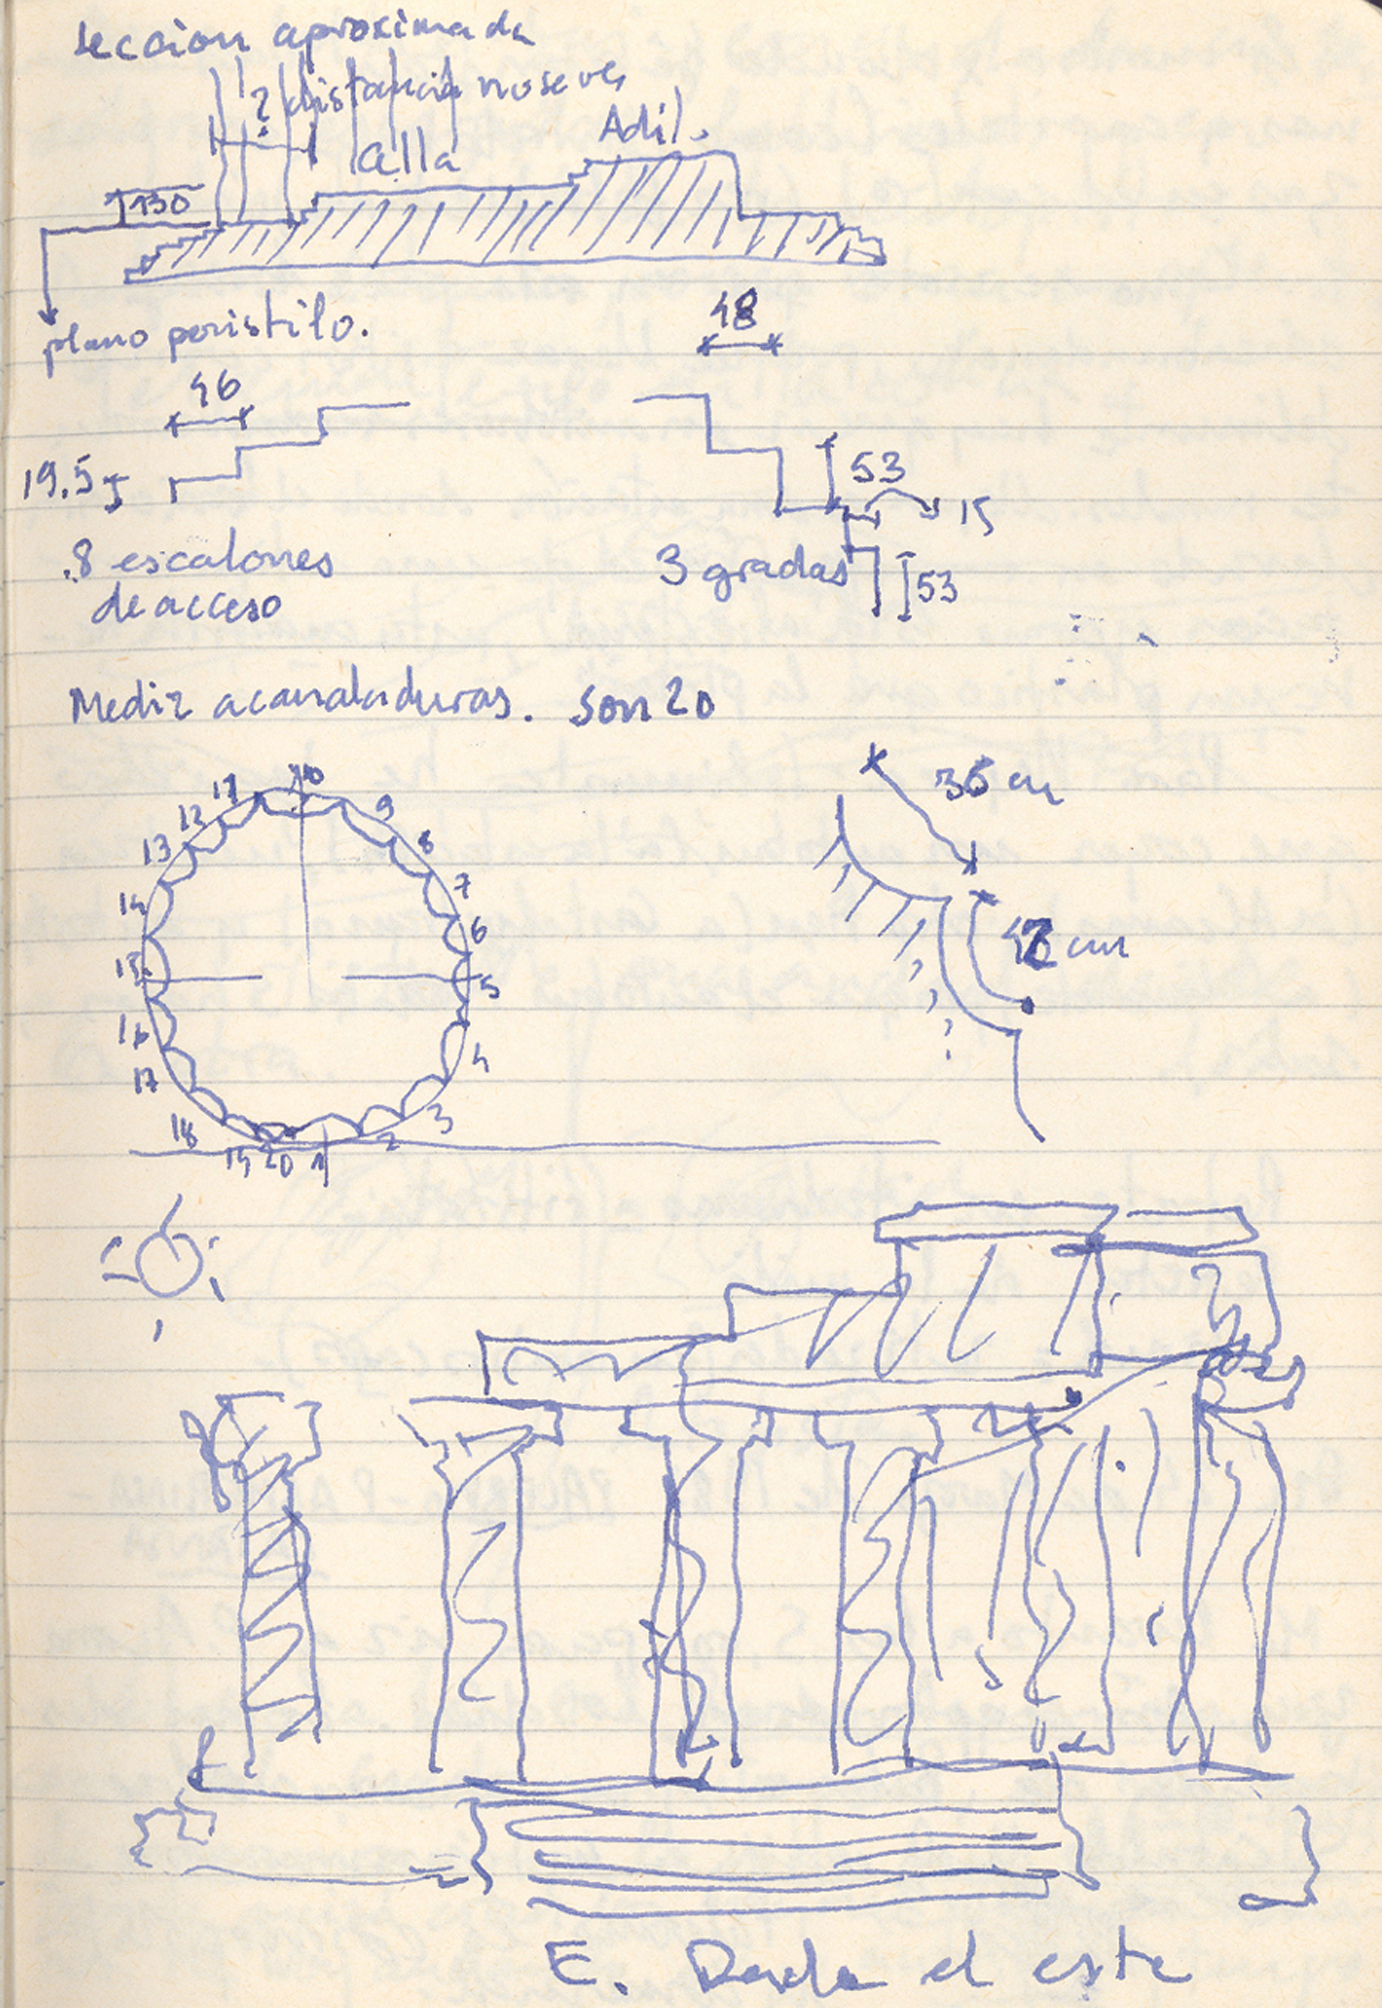 seccion aproximada
? distancia no se ve,
Adil.
Cella
130
plano peristilo.
48
46
19.5
53
15
8 escalones
de acceso
3 gradas
53
Mediz acanaladuras. Son 20
10
11
9
12
8
13
7
14
6
15
5
16
4
17
3
18
2
19 20 1
35 cm
42 cm
E. Desde el este